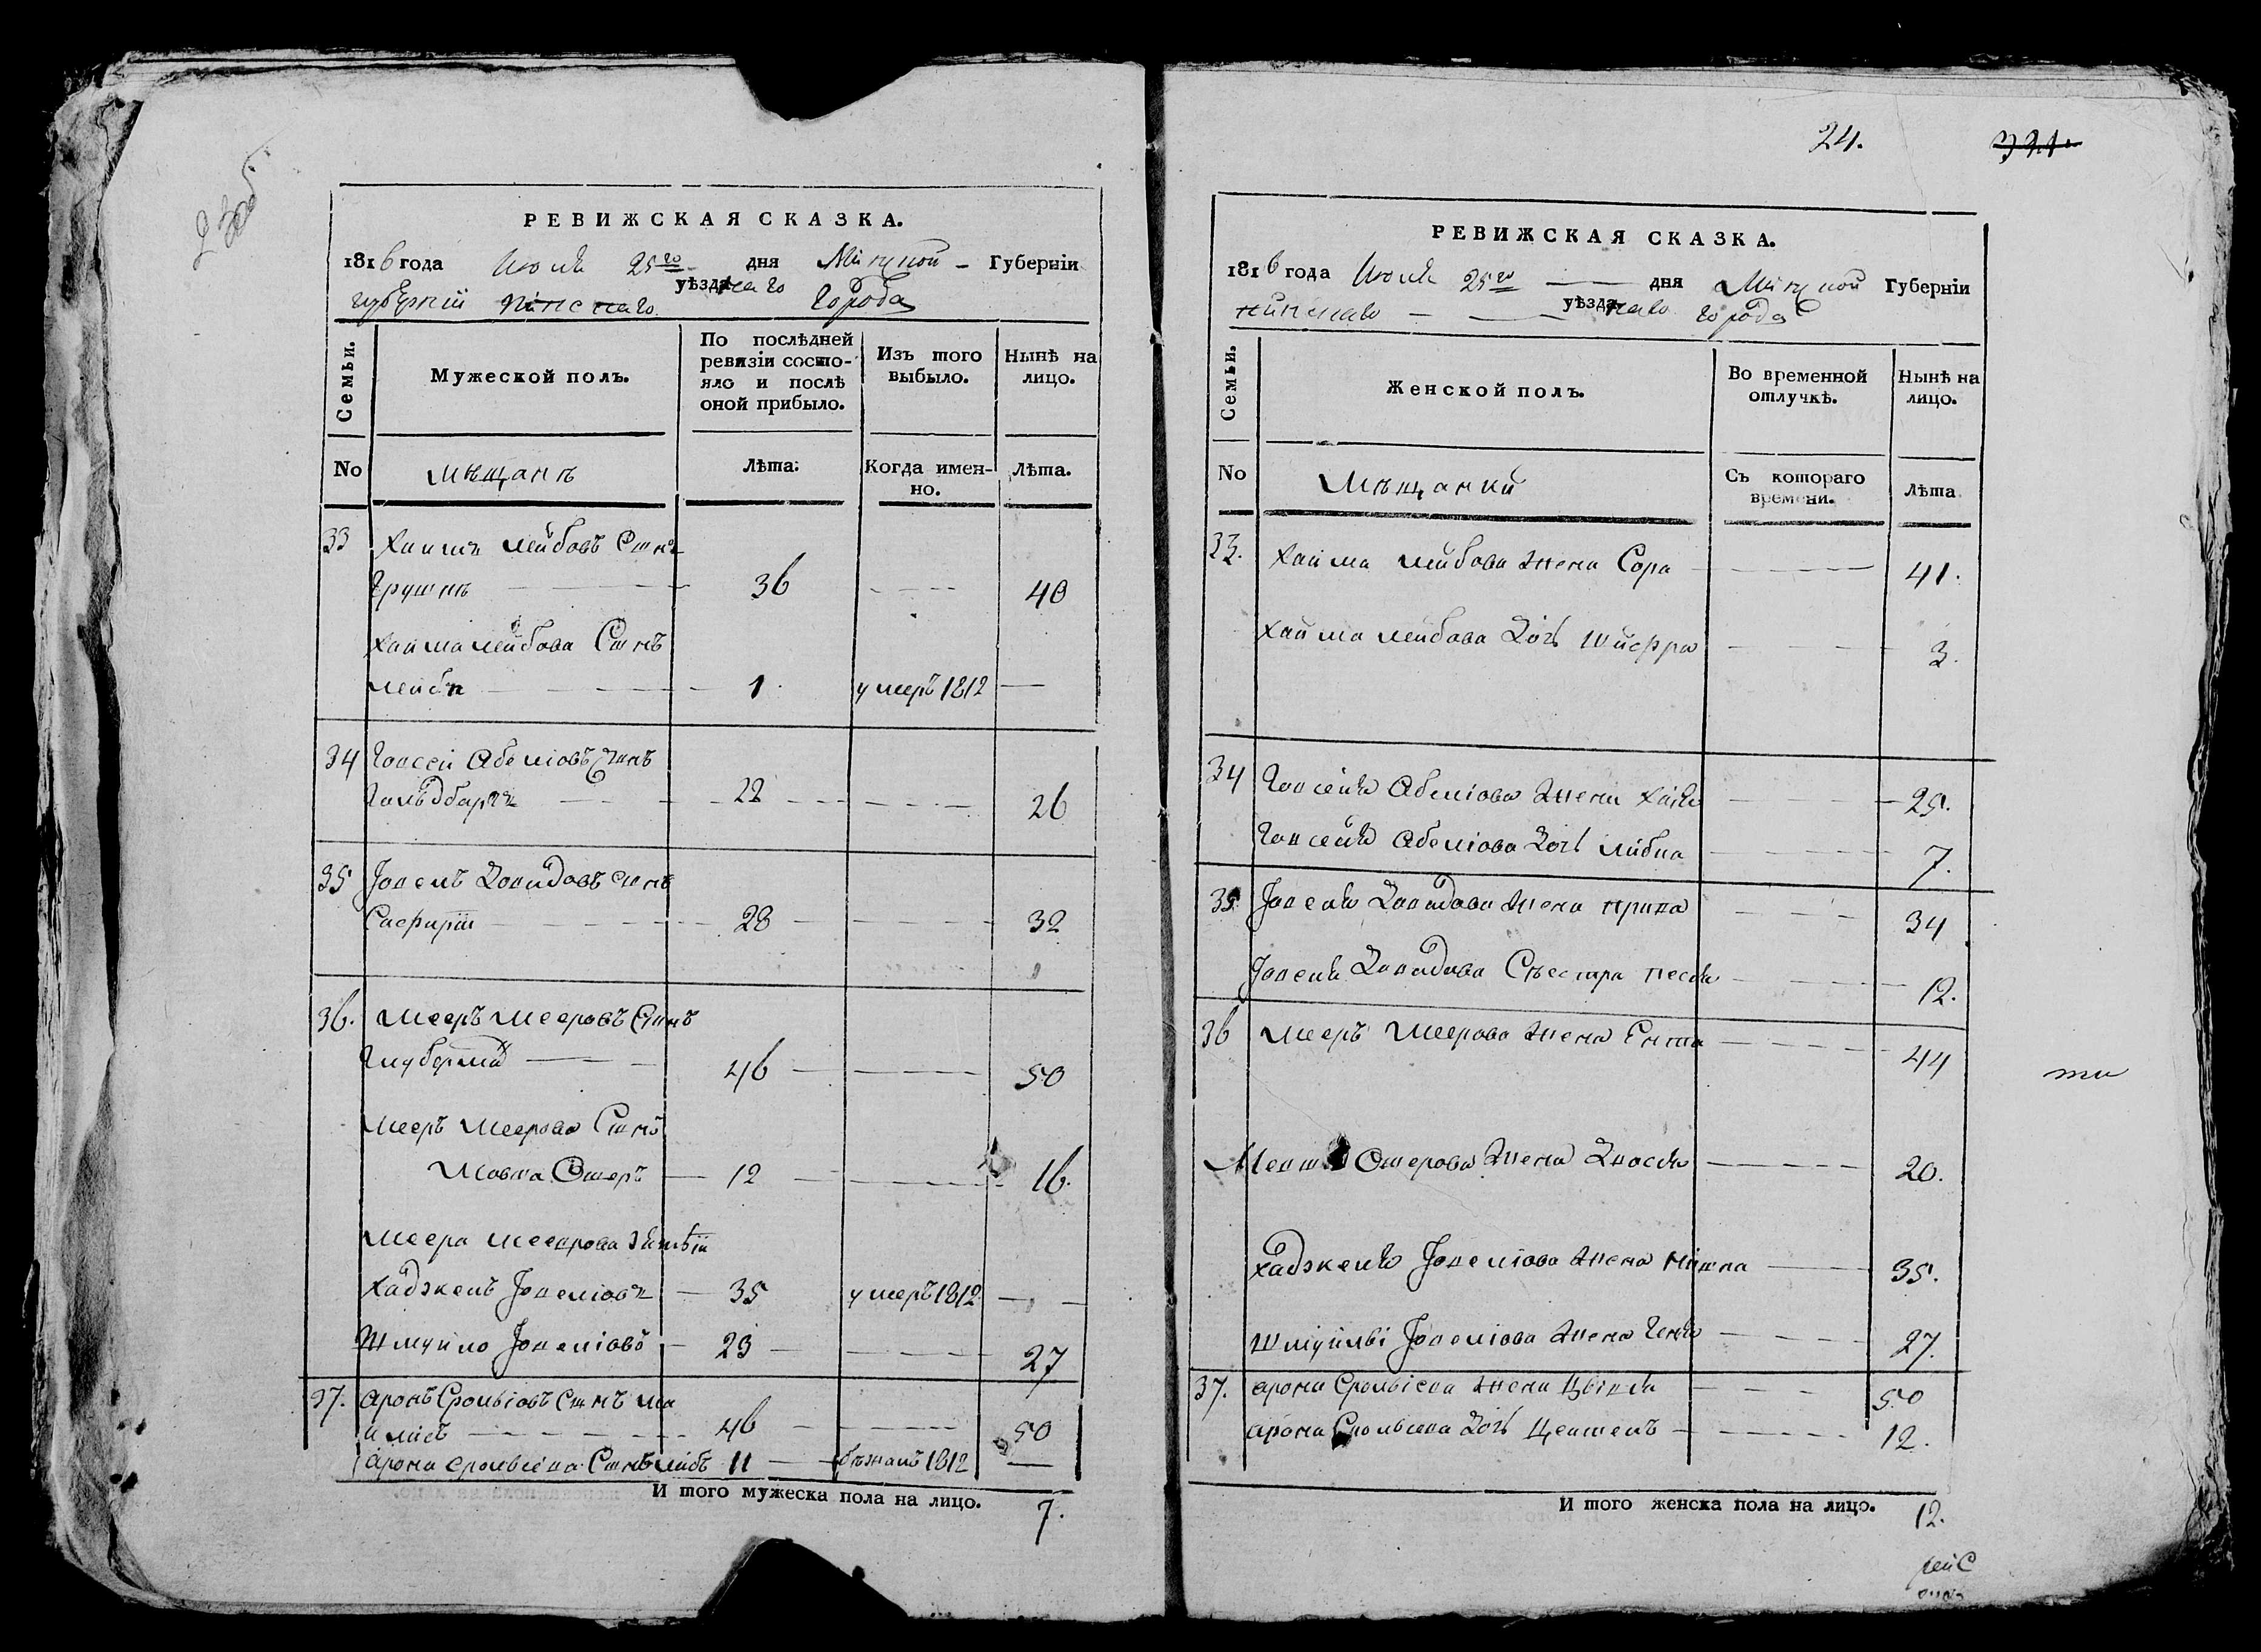 РЕВИЖСКАЯ СКАЗКА.
1816 года Июля 25го дня Минской Губерніи
губерніи Пинскаго уѣзднаго города
Семьи.
Мужеской полъ.
По послѣдней ревизіи состо-
яло и послѣ
оной прибыло.
Изъ того
выбыло.
Нынѣ на
лицо.
No
Мѣщанъ
Лѣта:
Когда имен-
но.
Лѣта.
33 Хаимъ Лейбовъ Сынъ
36 40
Хаима Лейбова Сынъ
Лейба 1 умеръ 1812
34 Абеліовъ Сынъ
22 26
35 Іовель Довидовъ сынъ
Сафиріи 28 32
36. Мееръ Мееровъ Сынъ
46 50
Мееръ Меерова Сынъ
Мовша Ошеръ 12 16.
Меера Меерова
Іовеліовъ 35 умеръ 1812
Шмуйло Іовеліовъ 23 27
37. Аронъ Срольіовъ Сынъ
46 50
Арона Срольіова Сынъ Лейбъ 11 бѣжалъ 1812
И того мужеска пола на лицо. 7.
24.
321
РЕВИЖСКАЯ СКАЗКА.
1816 года Июля 25го дня Минской Губерніи
Пинскаго уѣзднаго города
Семьи.
Женской полъ.
Во временной
отлучкѣ.
Нынѣ на
лицо.
No
Мѣщанки
Съ котораго
времени.
Лѣта
33. Хаима Лейбова Жена Сора 41.
Хаима Лейбова Дочь Шифра 3.
34 Абеліова Жена Хайка 25.
Абеліова Дочь Либка 7.
35. Іовеля Довидова Жена 34
Іовеля Довидова Сѣестра Песя 12.
36 Мееръ Меерова Жена Ента 44
Ошерова Жена Двося 20.
Іовеліова Жена 35.
Іовеліова Жена Геня 27.
37. Арона Срольіова Жена 50
Арона Срольіова Дочь 12.
И того женска пола на лицо. 12.